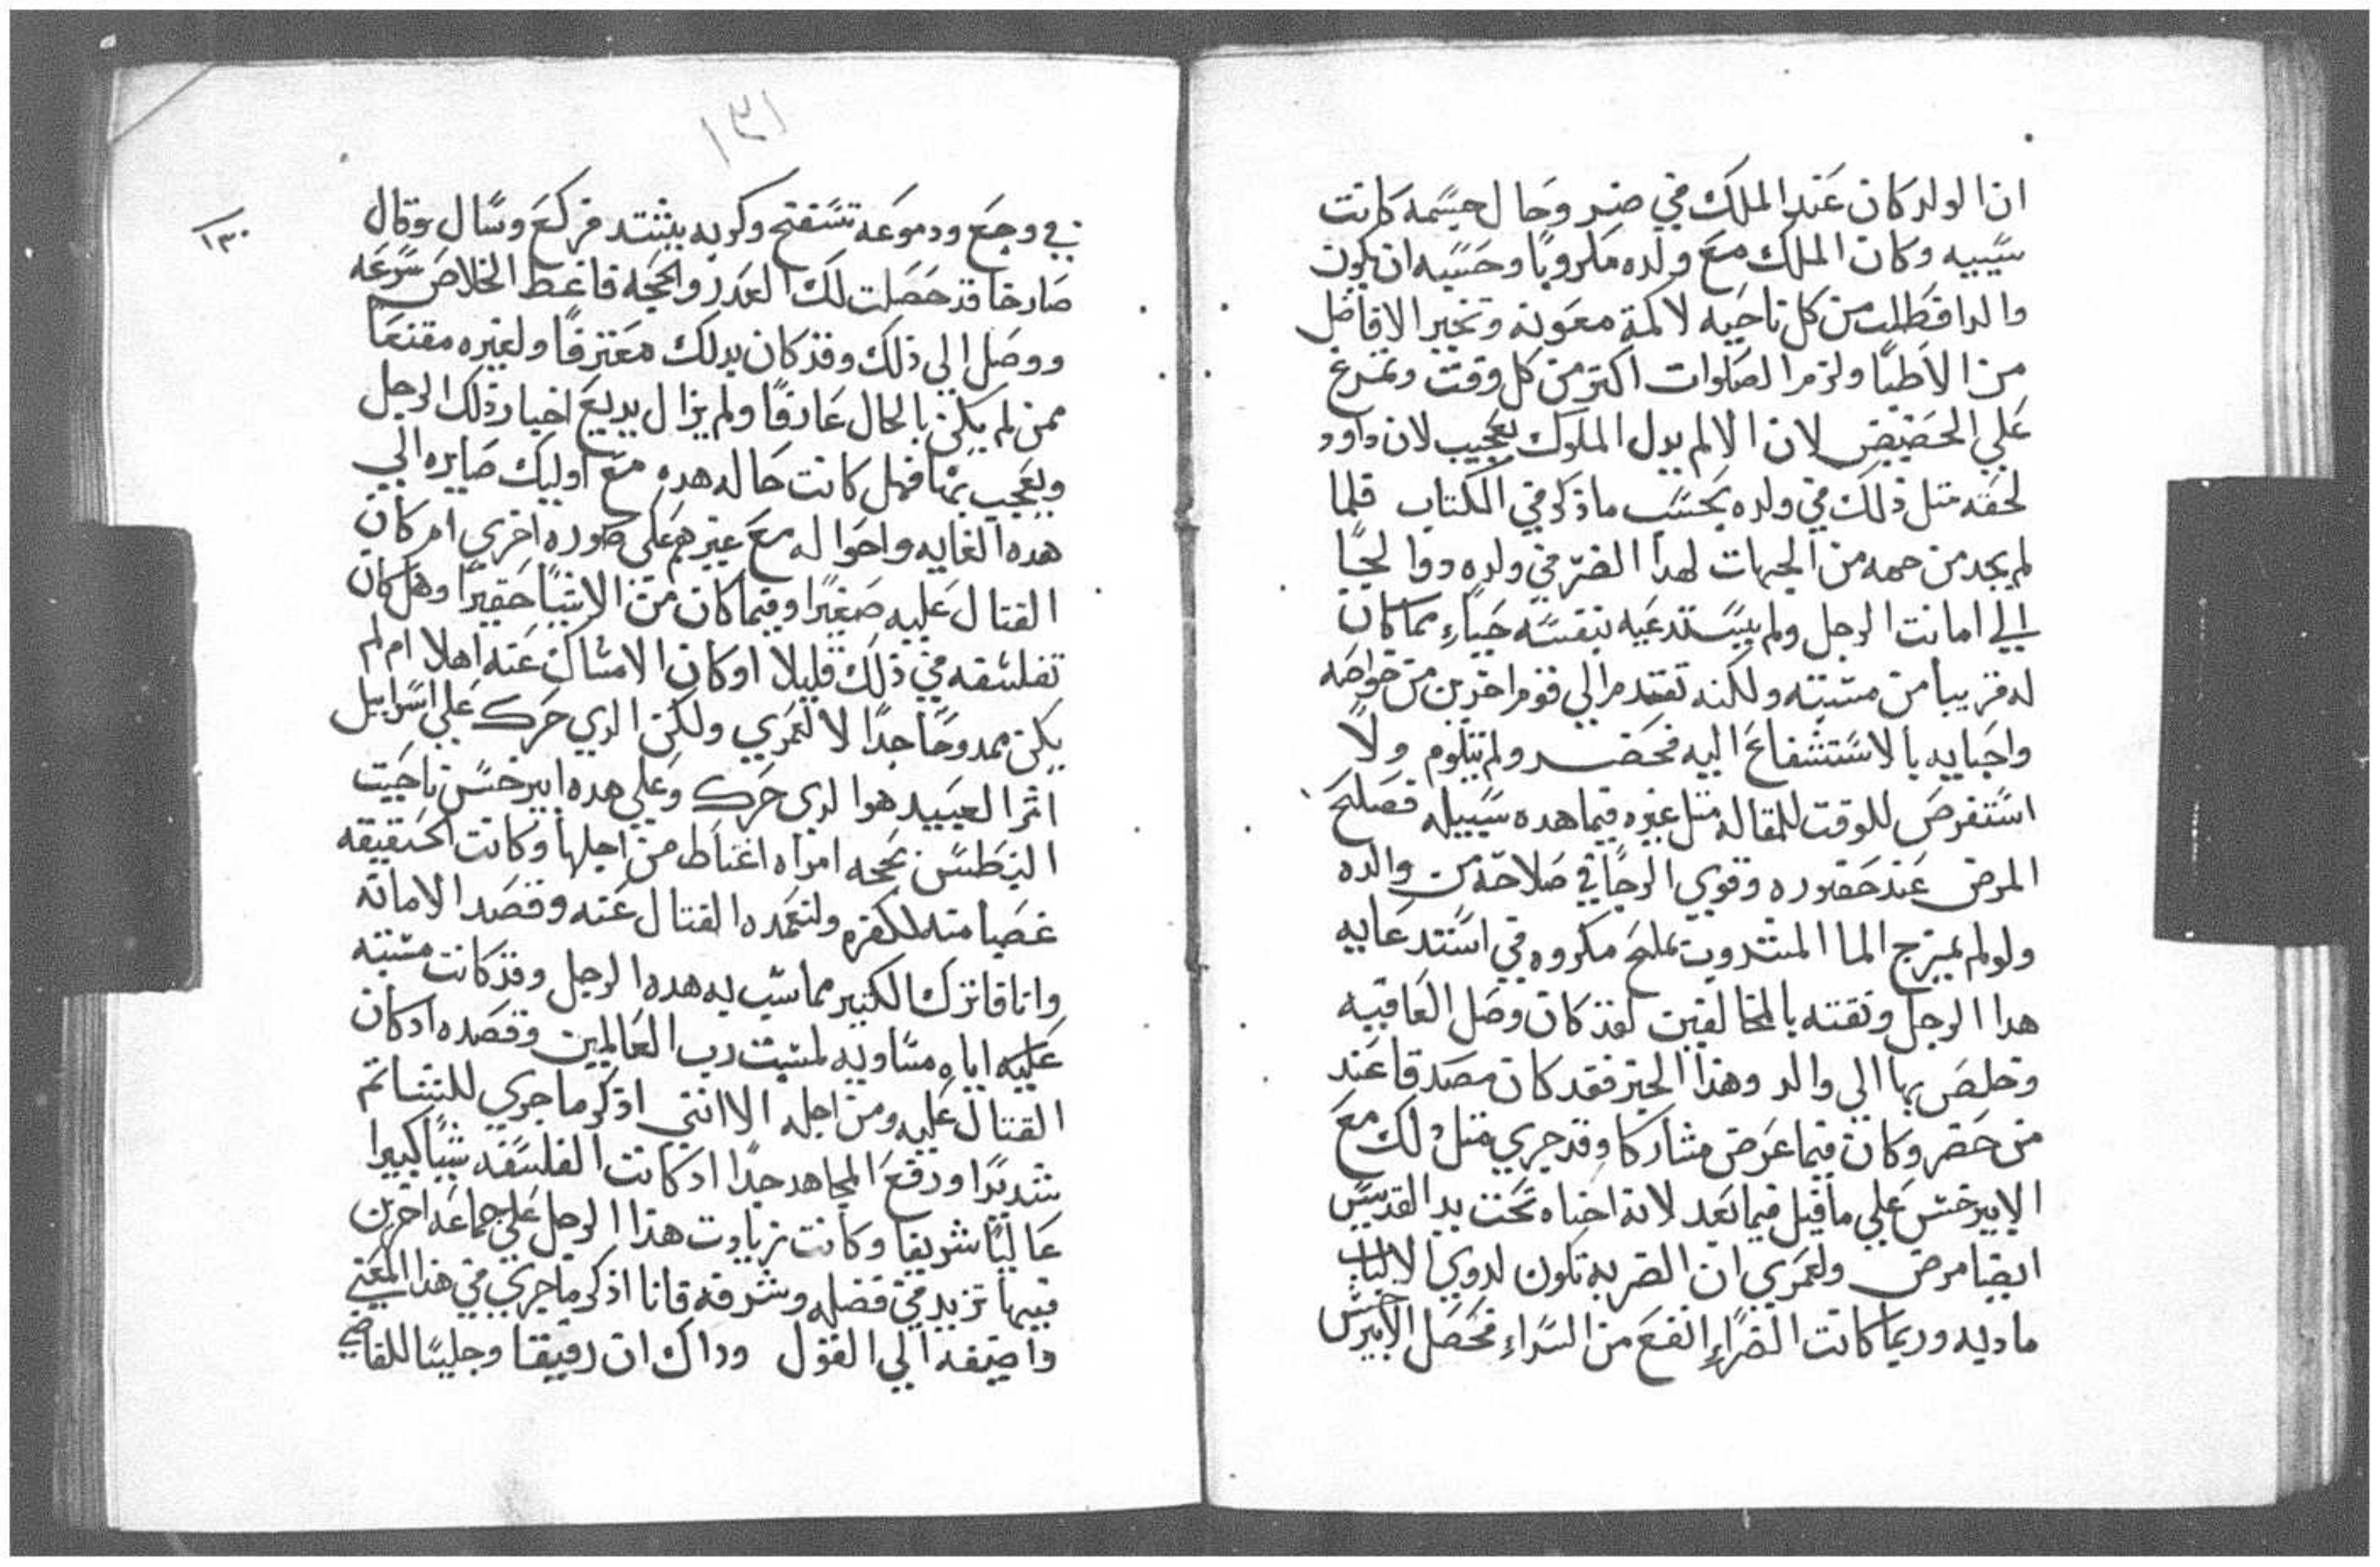 ان الولد كان عند الملك في ضر وحال جسمه كانت
سيبيه وكان الملك مع ولده مكروبًا وحسبه ان يكون
والدا فطلب من كل ناحيه لاكمة معونه وتخير الافاضل
من الاطبا ولزم الصلوات اكتر من كل وقت وتمرغ
علي الحضيض لان الالم يدل الملوك بعجيب لان داود
لحقه متل ذلك في ولده بحسب ما ذكر في الكتاب فلما
لم يجد من جهه من الجهات لهدا الضر في ولده دوا لجا
الي امانت الرجل ولم يستدعيه بنفسه حياء مما كان
له قريبا من مشيته ولكنه تقدم الي قوم اخرين من خواصه
واحبايه بالاستشفاع اليه فحضر ولم يتلوم ولا
استفرص للوقت للمقاله متل غيره فيما هده سبيله فصلح
المرض عند حضوره وقوي الرجا في صلاحه من والده
ولو لم يمزج الما المشروب بملح مكروه في استدعايه
هدا الرجل وتقته بالمخالفين لقد كان وصل العافيه
وخلص بها الي والد وهذا الخبر فقد كان مصدقا عند
من حضر وكان فيما عرض مشاركا وقد جري متل دلك مع
الابيرخس علي ما قيل فيما بعد لانه احناه تحت يد القديس
ايضا مرض ولعمري ان الضربه تكون لدوي الالباب
ماديه وربما كانت الضراء انفع من السراء فحصل الابيرخس
١٣١
١٣٠
في وجع ودموعه تسفح وكربه يشتد فركع وسال وقال
صارخا قد حصلت لك العدر والحجه فاعط الخلاص سرعه
ووصل الي ذلك وقد كان بدلك معترفًا ولغيره مقنعا
ممن لم يكن بالحال عارفًا ولم يزال يديع اخبار ذلك الرجل
ويعجب بها فهل كانت حاله هده مع اوليك صايره الي
هده الغايه واحواله مع غيرهم علي صوره اخري ام كان
القتال عليه صغيرًا وفيما كان من الاشيا حقيرًا وهل كان
تفلسفه في ذلك قليلا او كان الامساك عنه اهلا ام لم
يكن ممدوحًا جدًا لا لعمري ولكن الدي حرك علي اسراييل
اشر العبيد هوا لدي حرك وعلي هده ابيرخس ناحيت
النبطس بحجه امراه اغتاظ من اجلها وكانت الحقيقه
غصبا منه للكفره ولتعمده القتال عنه وقصد الامانه
وانا فاترك الكتير مما سب به هده الرجل وقد كانت مشيته
عليه اياه مساويه لمشيت رب العالمين وقصده اد كان
القتال عليه ومن اجله الا انني اذكر ما جري للتتا تم
شديدًا ورفع المجاهد جدًا اد كانت الفلسفه شيًا كبيرا
عاليًا شريفا وكانت زيادت هذا الرجل علي جماعه اخرين
فيها تزيد في فضله وشرفه فانا اذكر ما جري في هذا المعني
واضيفه الي القول وداك ان رفيقا وجليسا للقاضي